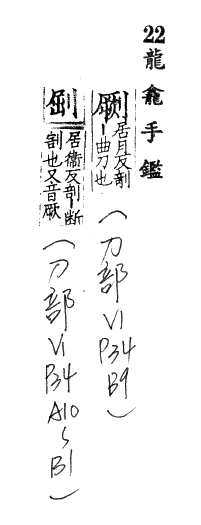 22 龍龕手鑑
劂 居月反剞ー曲刀也
(刀部 V1 P34 B9)
居衛反剖ー断割也又音厥
(刀部 V1 P34 A10 5 B1)